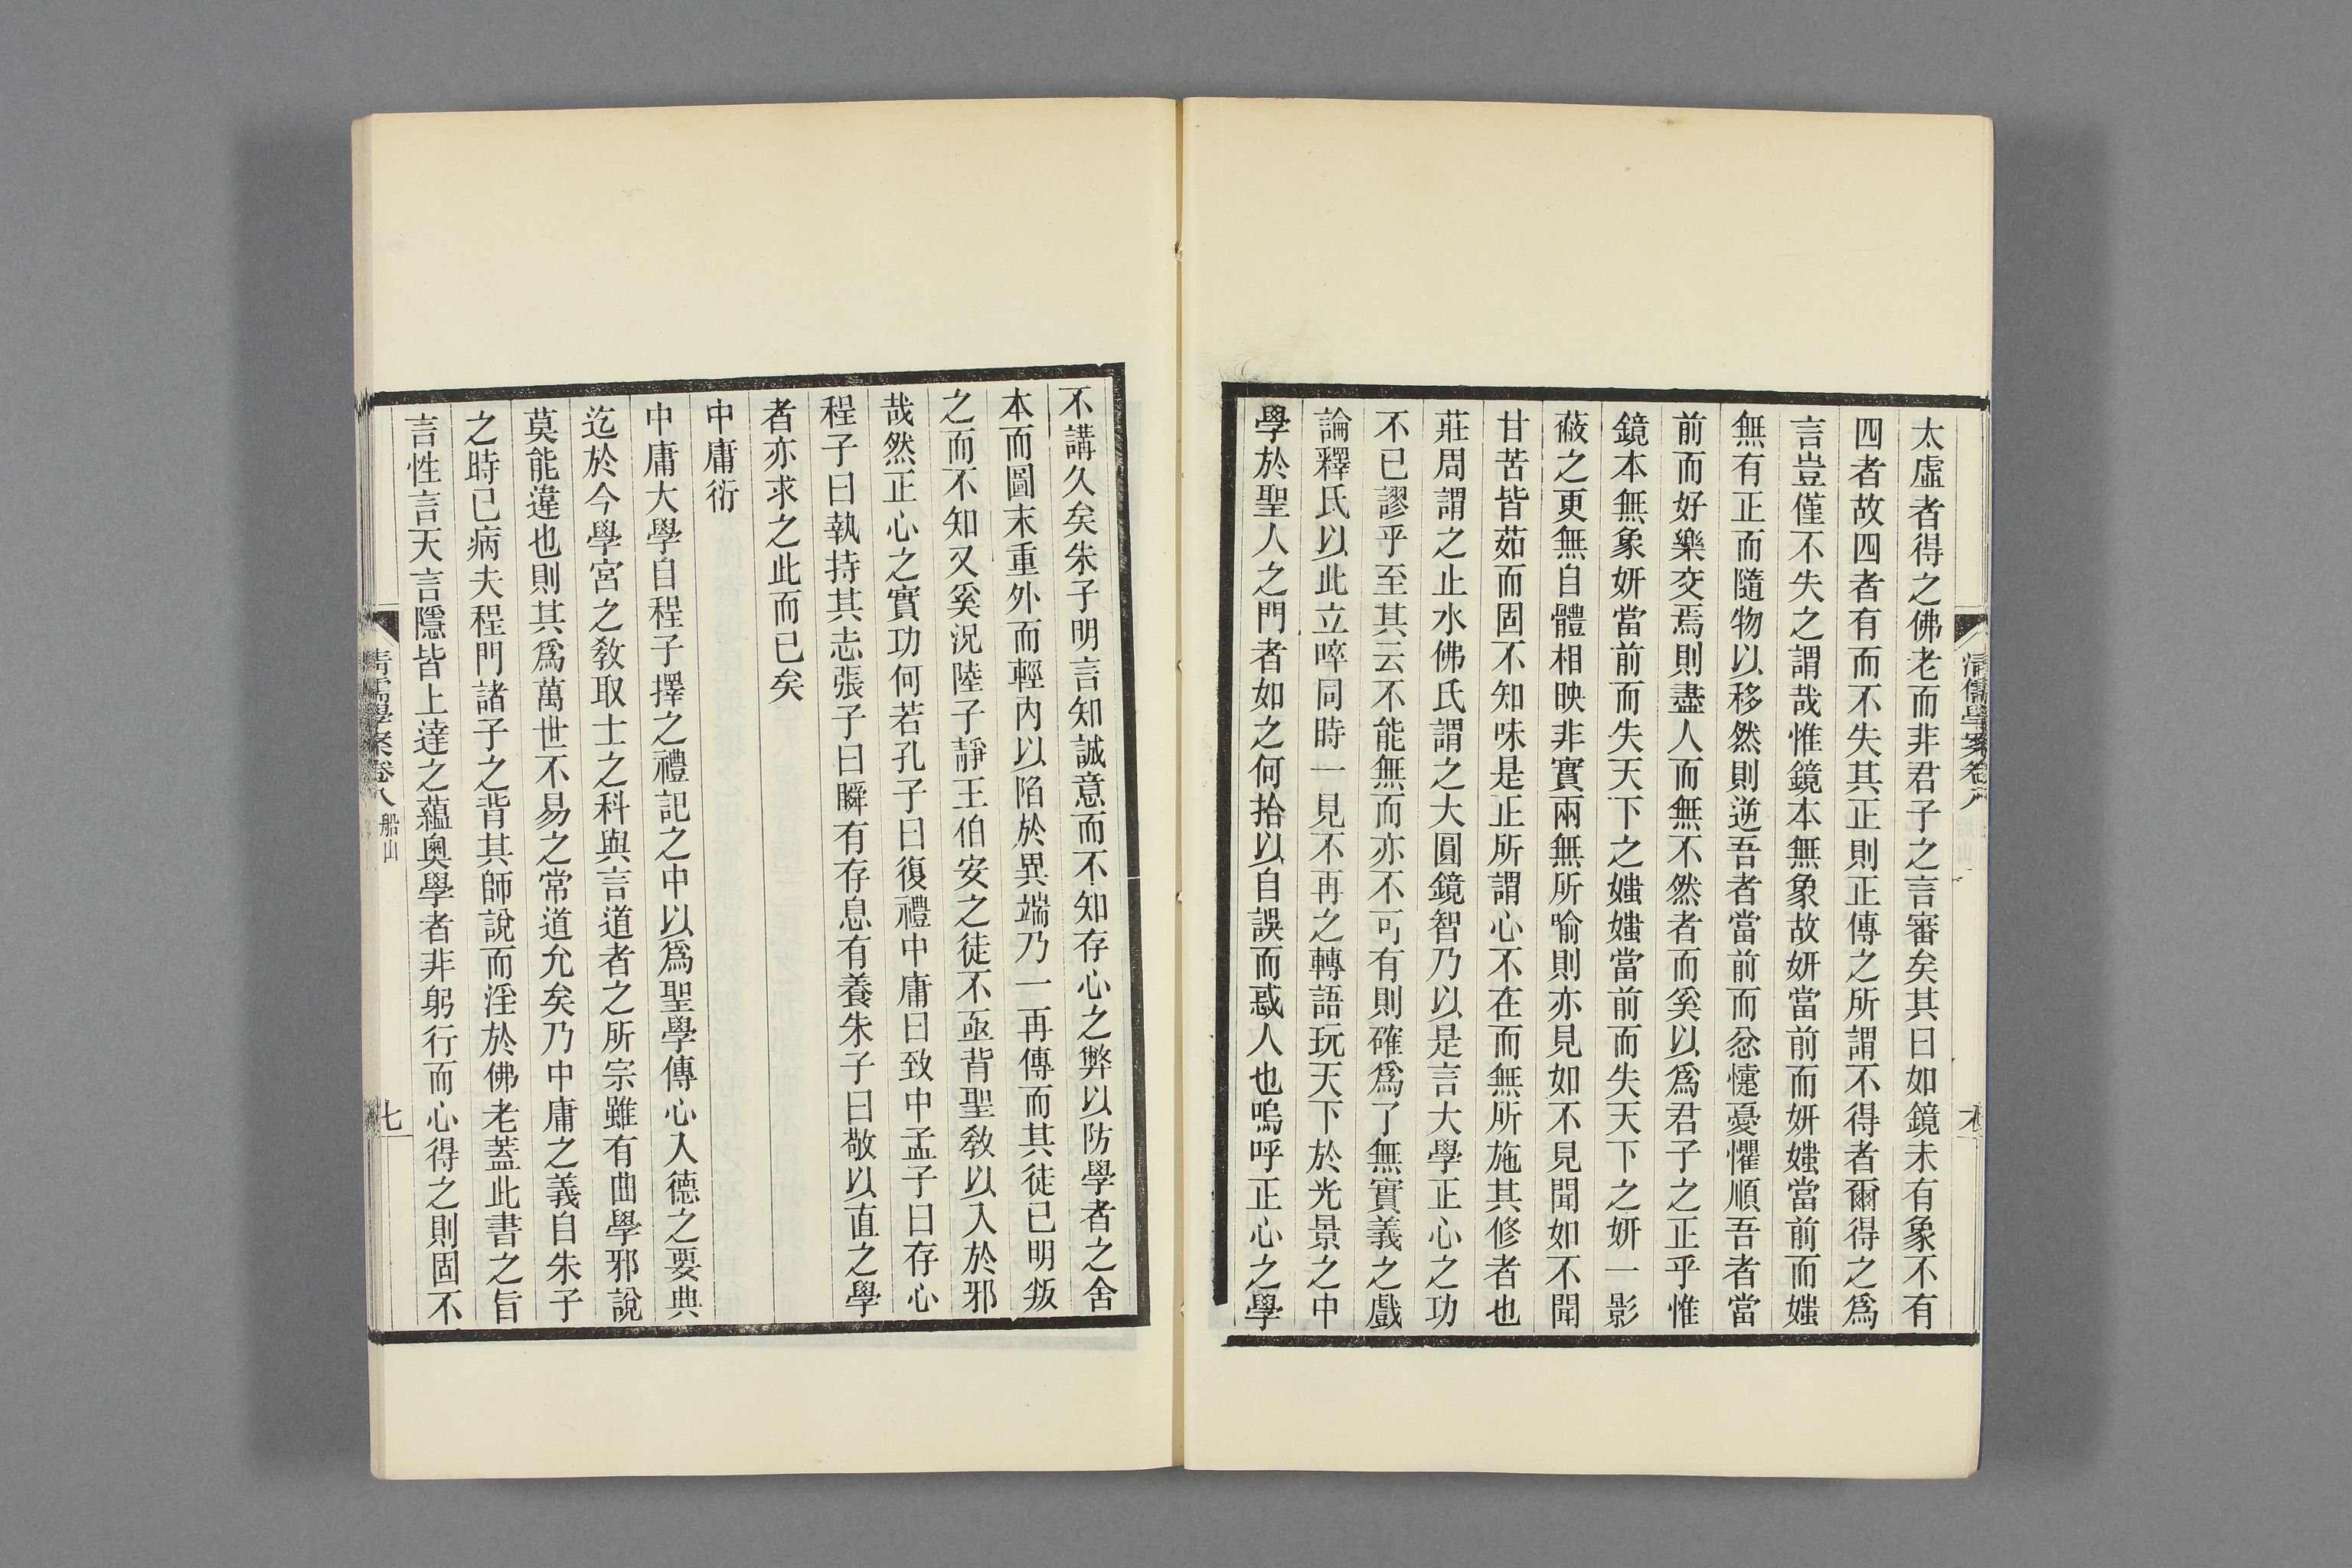 太虛者得之佛老而非君子之言審矣其曰如鏡未有象不有
四者故四者有而不失其正則正傳之所謂不得者爾得之爲
言豈僅不失之謂哉惟鏡本無象故妍當前而妍媸當前而媸
無有正而隨物以移然則逆吾者當前而忿懥憂懼順吾者當
前而好樂交焉則盡人而無不然者而奚以爲君子之正乎惟
鏡本無象妍當前而失天下之媸媸當前而失天下之妍一影
蔽之更無自體相映非實兩無所喻則亦見如不見聞如不聞
甘苦皆茹而固不知味是正所謂心不在而無所施其修者也
莊周謂之止水佛氏謂之大圓鏡智乃以是言大學正心之功
不已謬乎至其云不能無而亦不可有則確爲了無實義之戲
論釋氏以此立啐同時一見不再之轉語玩天下於光景之中
學於聖人之門者如之何拾以自誤而惑人也嗚呼正心之學
清儒學案卷八
不講久矣朱子明言知誠意而不知存心之弊以防學者之舍
本而圖末重外而輕內以陷於異端乃一再傳而其徒已明叛
之而不知又奚況陸子靜王伯安之徒不亟背聖敎以入於邪
哉然正心之實功何若孔子曰復禮中庸曰致中孟子曰存心
程子曰執持其志張子曰瞬有存息有養朱子曰敬以直之學
者亦求之此而已矣
中庸衍
中庸大學自程子擇之禮記之中以爲聖學傳心入德之要典
迄於今學宮之敎取士之科與言道者之所宗雖有曲學邪說
莫能違也則其爲萬世不易之常道允矣乃中庸之義自朱子
之時已病夫程門諸子之背其師說而淫於佛老蓋此書之旨
言性言天言隱皆上達之蘊奧學者非躬行而心得之則固不
清儒學案卷八 船山
七